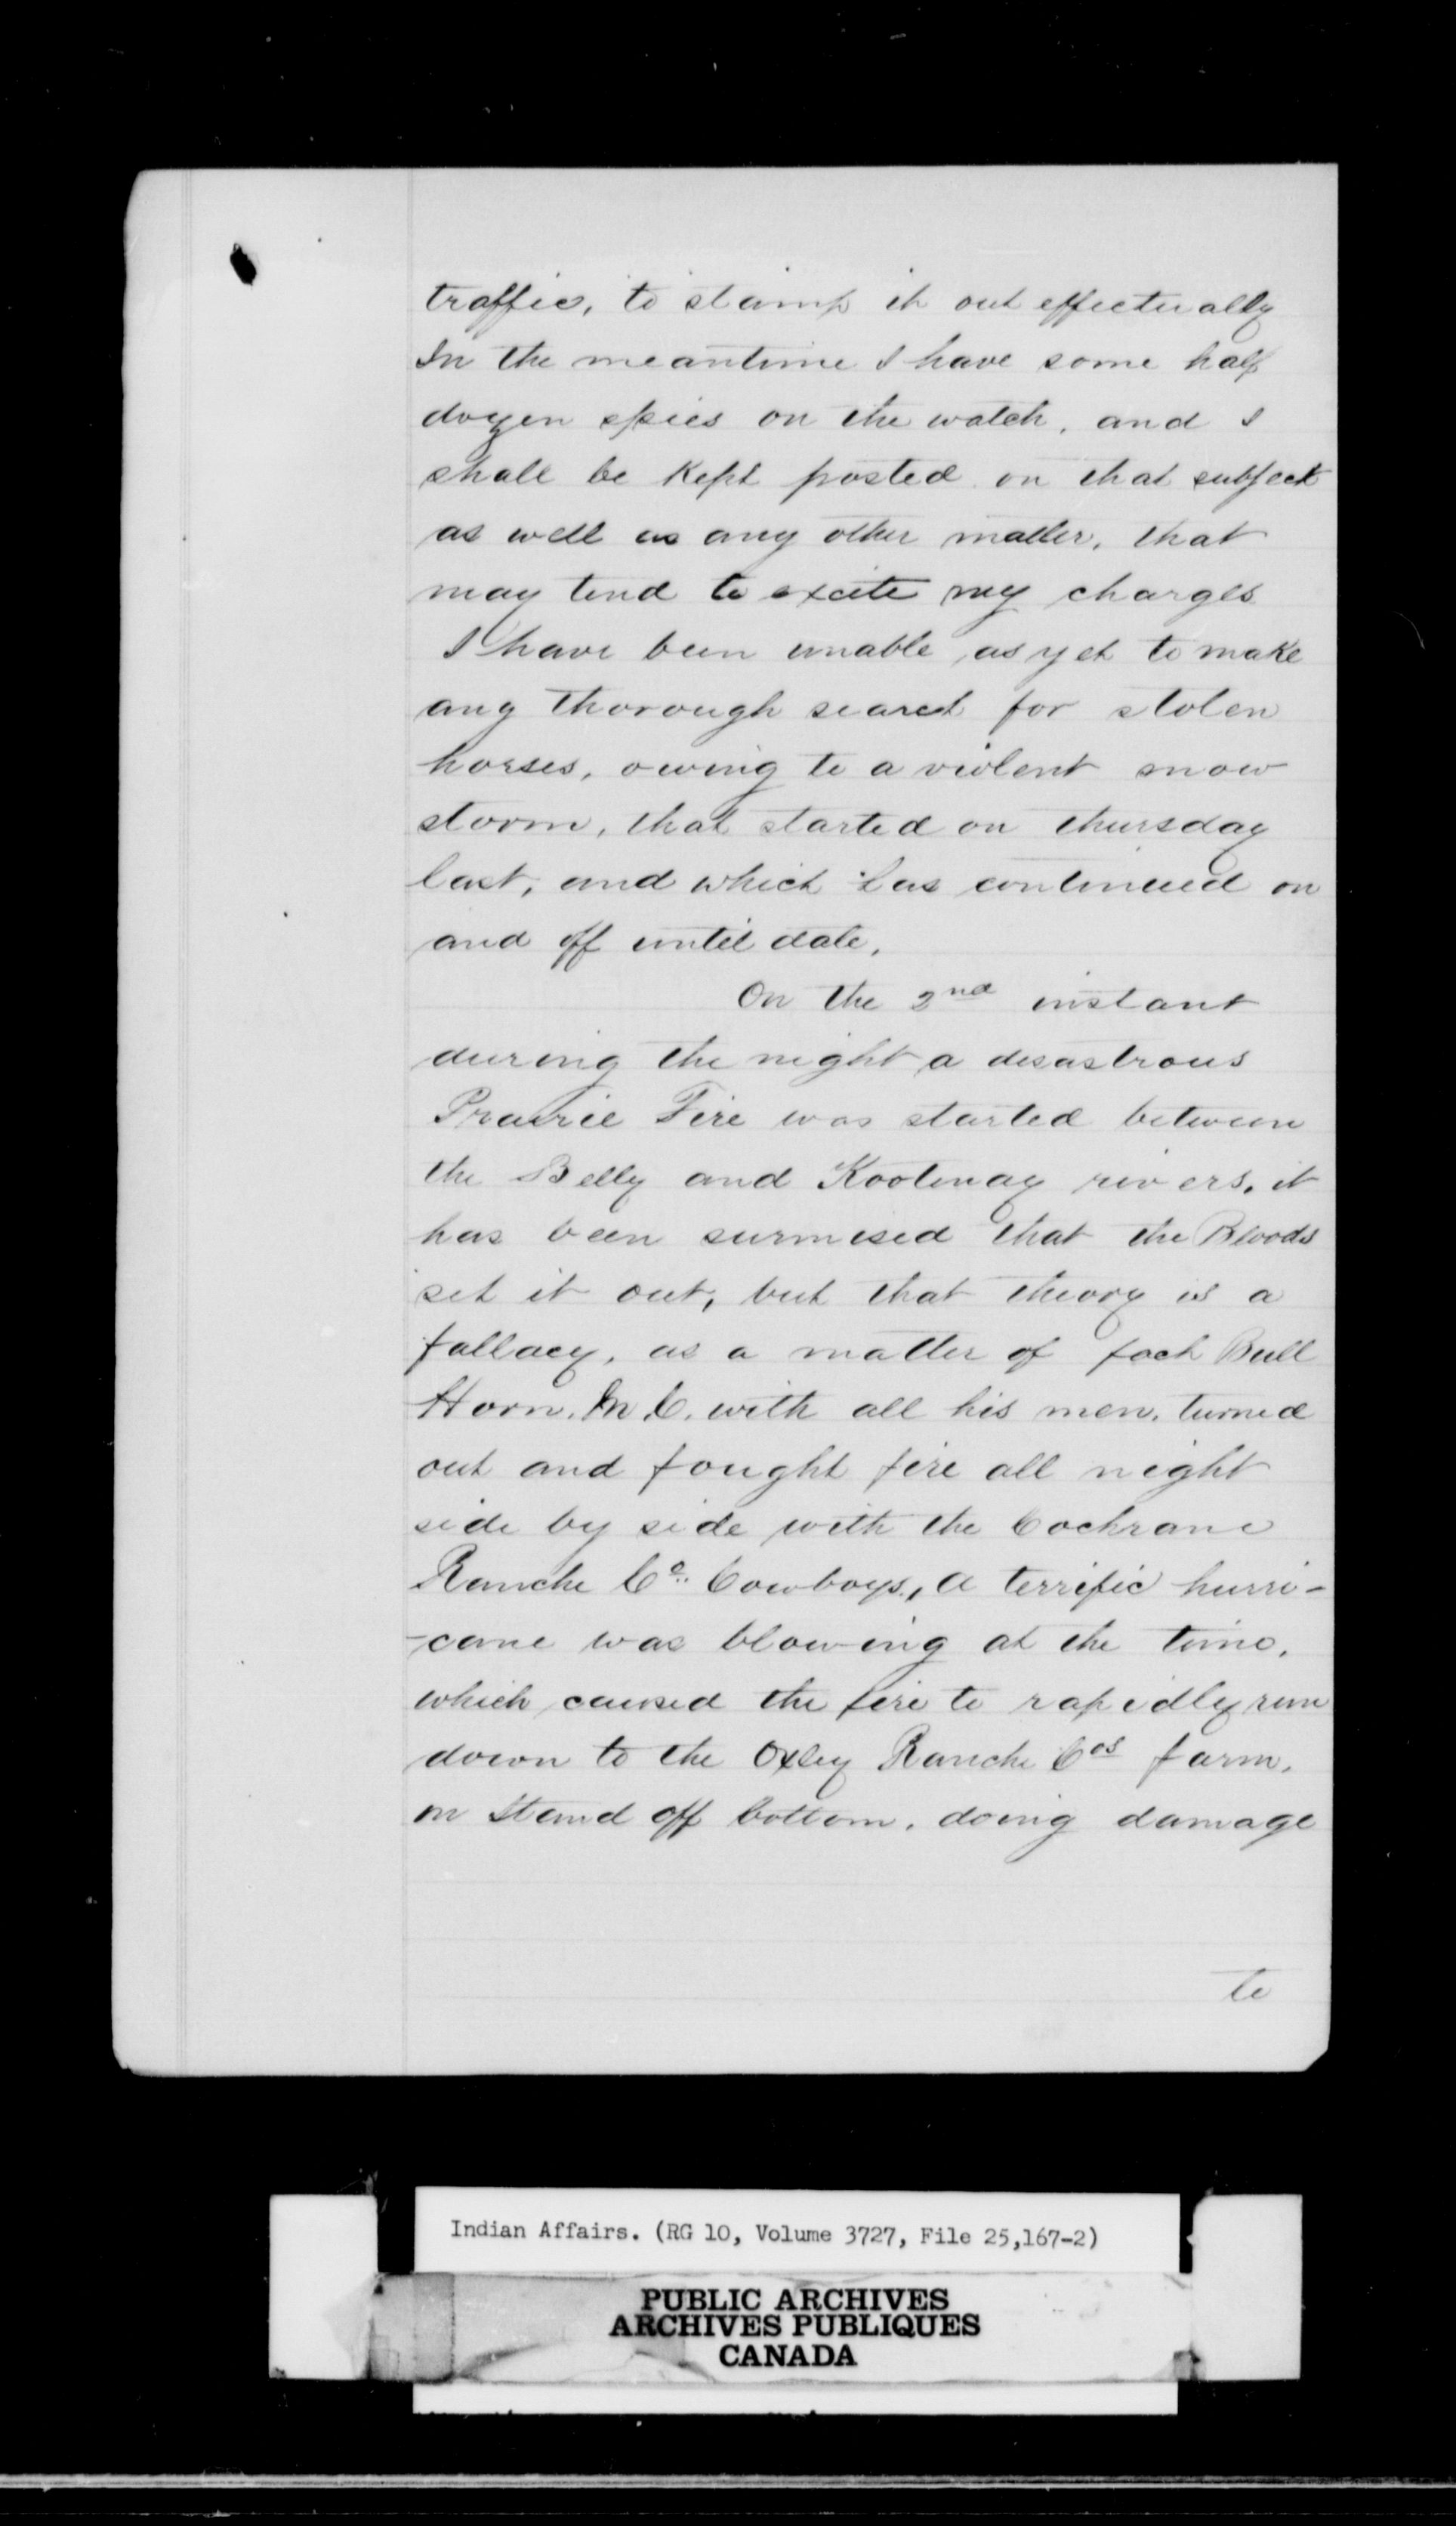 traffic, to stamp it out effectually
In the meantime I have some half
dozen spies on the watch, and I
shall be kept posted on that subject
as well as any other matter, that
may tend to excite my charges
I have been unable as yet to make
any thorough search for stolen
horses, owing to a violent snow
storm, that started on thursday
last, and which has continued on
and off until date,
On the 2nd instant
during the night a desastrous
Prairie Fire was started between
the Belly and Kootenay rivers, it
has been surmised that the Bloods
set it out, but that theory is a
fallacy, as a matter of fact Bull
Horn, M.C. with all his men, turned
out and fought fire all night
side by side with the Cochrane
Ranche Co. Cowboys, a terrific hurri-
-cane was blowing at the time,
which caused the fire to rapidly run
down to the Oxley Ranche Cos farm,
on Stand off bottom, doing damage
to
Indian Affairs. (RG 10, Volume 3727, File 25,167-2)
PUBLIC ARCHIVES
ARCHIVES PUBLIQUES
CANADA